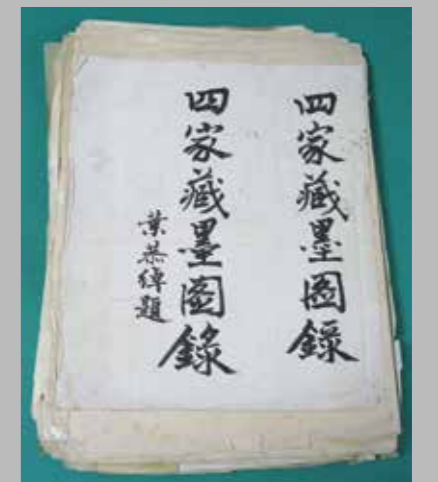 四家藏墨圖錄
四家藏墨圖錄
葉恭綽題